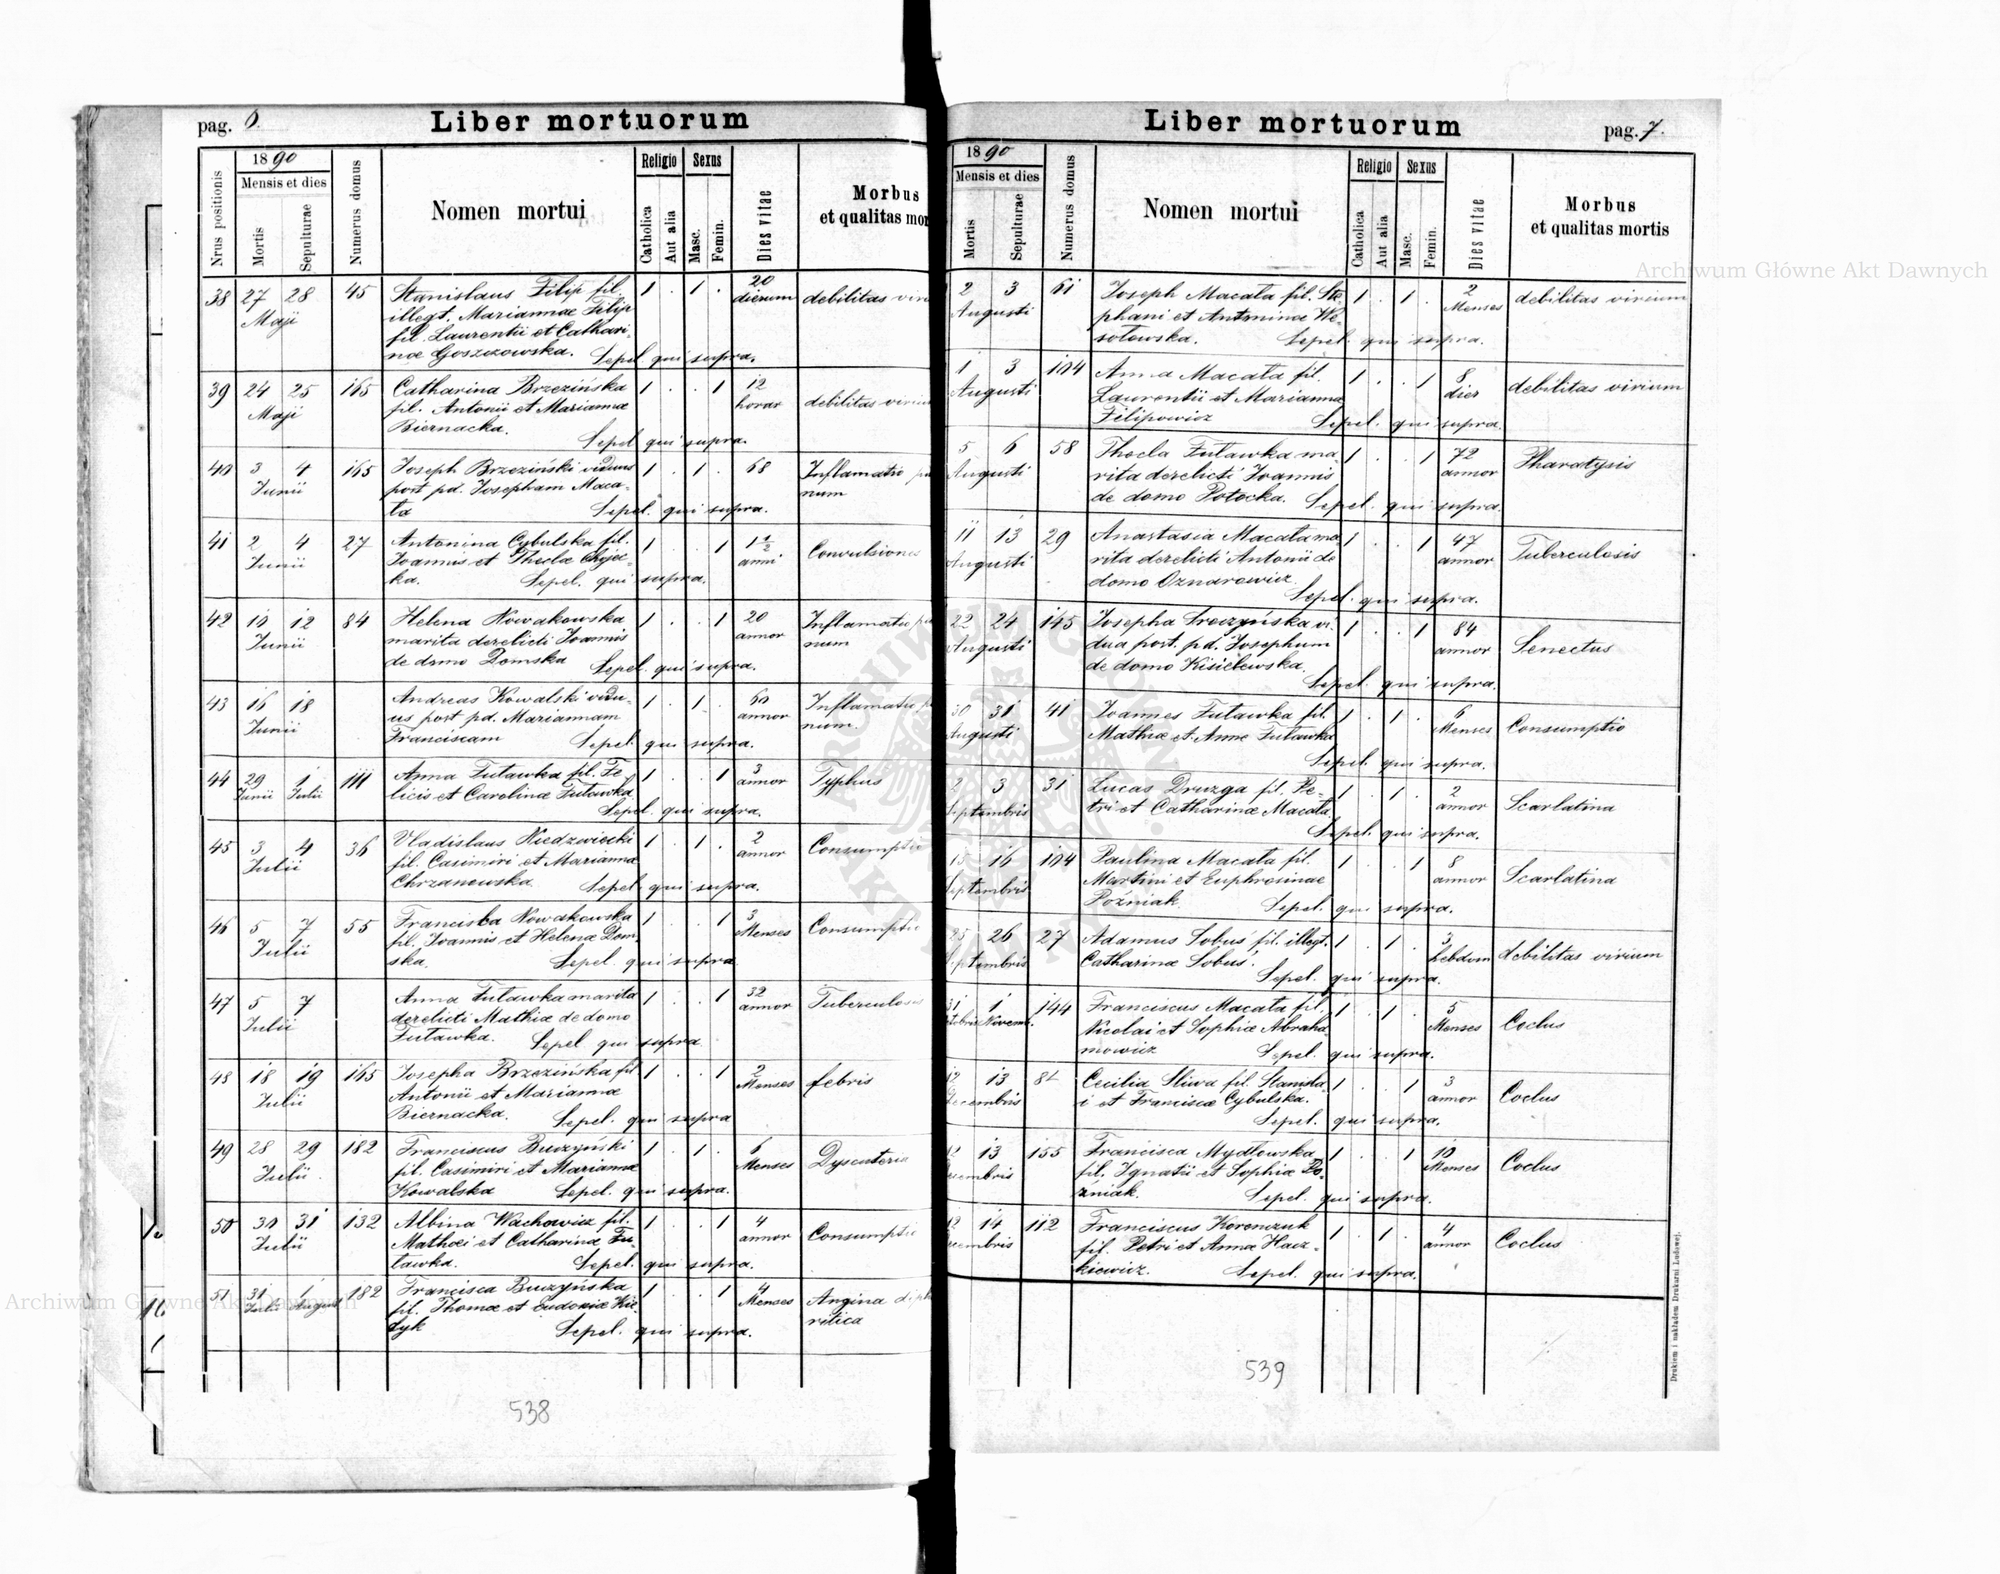 pag. 6.
Liber mortuorum
Nrus positionis
1890
Mensis et dies
Mortis
Sepulturae
Numerus domus
Nomen mortui
Religio
Catholica
Aut alia
Sexus
Masc.
Femin.
Dies vitae
Morbus
et qualitas mor
38 27 28 45 Stanislaus Filip fil. 1 . 1 . 20
Maji illegt. Mariannae Filip dierum debilitas
fil. Laurentii et Cathari-
nae Goszczowska. Sepel. qui supra.
39 24 25 165 Catharina Brzezińska 1 . . 1 12
Maji fil. Antonii et Marianna horar debilitas virium
Biernacka.
Sepel. qui supra.
40 3 4 165 Joseph Brzeziński viduus 1 . 1 . 68 Inflamatio
Junii post pd. Josepham Maca- num
ła Sepel. qui supra.
41 2 4 27 Antonina Cybulska fil. 1 . . 1 1 1/2
Junii Joannis et Thecla anni Convulsiones
ka. Sepel. qui supra.
42 10 12 84 Helena Nowakowska 1 . . 1 20 Inflamatio
Junii marita derelicti Joannis annor num
de domo Domska Sepel. qui supra.
43 16 18 Andreas Kowalski vidu- 1 . 1 . 60 Inflamatio
Junii us post pd. Mariannam annor num.
Franciscam Sepel. qui supra.
44 29 1 111 Anna Futawka fil. Fe- 1 . . 1 3 Typhus
Junii Julii licis et Carolina Futawka annor
Sepel. qui supra.
45 3 4 36 Vladislaus Niedzwiecki 1 . 1 . 2
Julii fil. Casimiri et Marianna annor Consumptio
Chrzanowska Sepel. qui supra.
46 5 7 55 Francisca Nowakowska 1 . . 1 3
Julii fil. Joannis et Helena Dom- Menses Consumptio
ska. Sepel. qui supra
47 5 7 Anna Futawka marita 1 . . 1 32 Tuberculosis
Julii derelicti Mathiae de domo annor
Futawka. Sepel. qui supra
48 18 19 165 Josepha Brzezińska fil 1 . . 1 2 febris
Julii Antonii et Marianna Menses
Biernacka. Sepel. qui supra
49 28 29 182 Franciscus Buczyński 1 . 1 . 6
Julii fil. Casimiri et Marianna Menses Dysenteria
Kowalska Sepel. qui supra.
50 30 31 132 Albina Wachowicz fil. 1 . . 1 4
Julii Mathaei et Catharina Fu- annor Consumptio
tawka. Sepel. qui supra.
51 31 1 182 Francisca Buczyńska 1 . . 1 4 Angina
Julii August fil. Thomae et Eudoxiae Menses ritica
Sepel. qui supra.
538
Liber mortuorum
pag. 7.
1890
Mensis et dies
Mortis
Sepulturae
Numerus domus
Nomen mortui
Religio
Catholica
Aut alia
Sexus
Masc.
Femin.
Dies vitae
Morbus
et qualitas mortis
2 3 61 Joseph Macała fil. Ste- 1 . 1 . 2 debilitas virium
Augusti phani et Antonina We- Menses
sołowska. Sepel. qui supra.
1 3 104 Anna Macała fil. 1 . . 1 8 debilitas virium
Augusti Laurentii et Marianna dier
Filipowicz Sepel. qui supra.
5 6 58 Thecla Futawka ma- 1 . . 1 72
Augusti rita derelicti Joannis annor Pharatysis
de domo Potocka. Sepel. qui supra.
11 13 29 Anastasia Macała ma- 1 . . 1 47
Augusti rita derelicti Antonii de annor Tuberculosis
domo Oznarowicz
Sepel. qui supra.
22 24 145 Josepha Troczyńska vi- 1 . . 1 84
Augusti dua post. pd. Josephum annor Senectus
de domo Kisielewska.
Sepel. qui supra.
30 31 41 Joannes Futawka fil. 1 . 1 . 6
Augusti Mathiae et Annae Futawka Menses Consumptio
Sepel. qui supra.
2 3 31 Lucas Druzga fil. Pe- 1 . 1 . 2
Septembris tri et Catharinae Macała annor Scarlatina
Sepel. qui supra.
15 16 104 Paulina Macała fil. 1 . . 1 8
Septembris Martini et Euphrosinae annor Scarlatina
Poźniak. Sepel. qui supra.
25 26 27 Adamus Sobuś fil. illegt. 1 . 1 . 3
Septembris Catharinae Sobuś. hebdom debilitas virium
Sepel. qui supra.
31 1 144 Franciscus Macała fil. 1 . 1 . 5
Novemb. Nicolai et Sophiae Abraha- Menses Coclus
mowicz Sepel. qui supra.
12 13 Cecilia Sliwa fil. Stanisla- 1 . . 1 3
Decembris i et Franciscae Cybulska. annor Coclus
Sepel. qui supra.
12 13 155 Francisca Mydłowska 1 . . 1 10
Decembris fil. Ignatii et Sophiae Po- Menses Coclus
źniak. Sepel. qui supra.
12 14 112 Franciscus Korenczuk 1 . 1 . 4
Decembris fil. Petri et Anna Hacz- annor Coclus
kiewicz. Sepel. qui supra.
539
Drukiem i nakładem Drukarni Ludowej.
Archiwum Główne Akt Dawnych
Archiwum Główne Akt Dawnych
ARCHIWUM GŁÓWNE AKT DAWNYCH